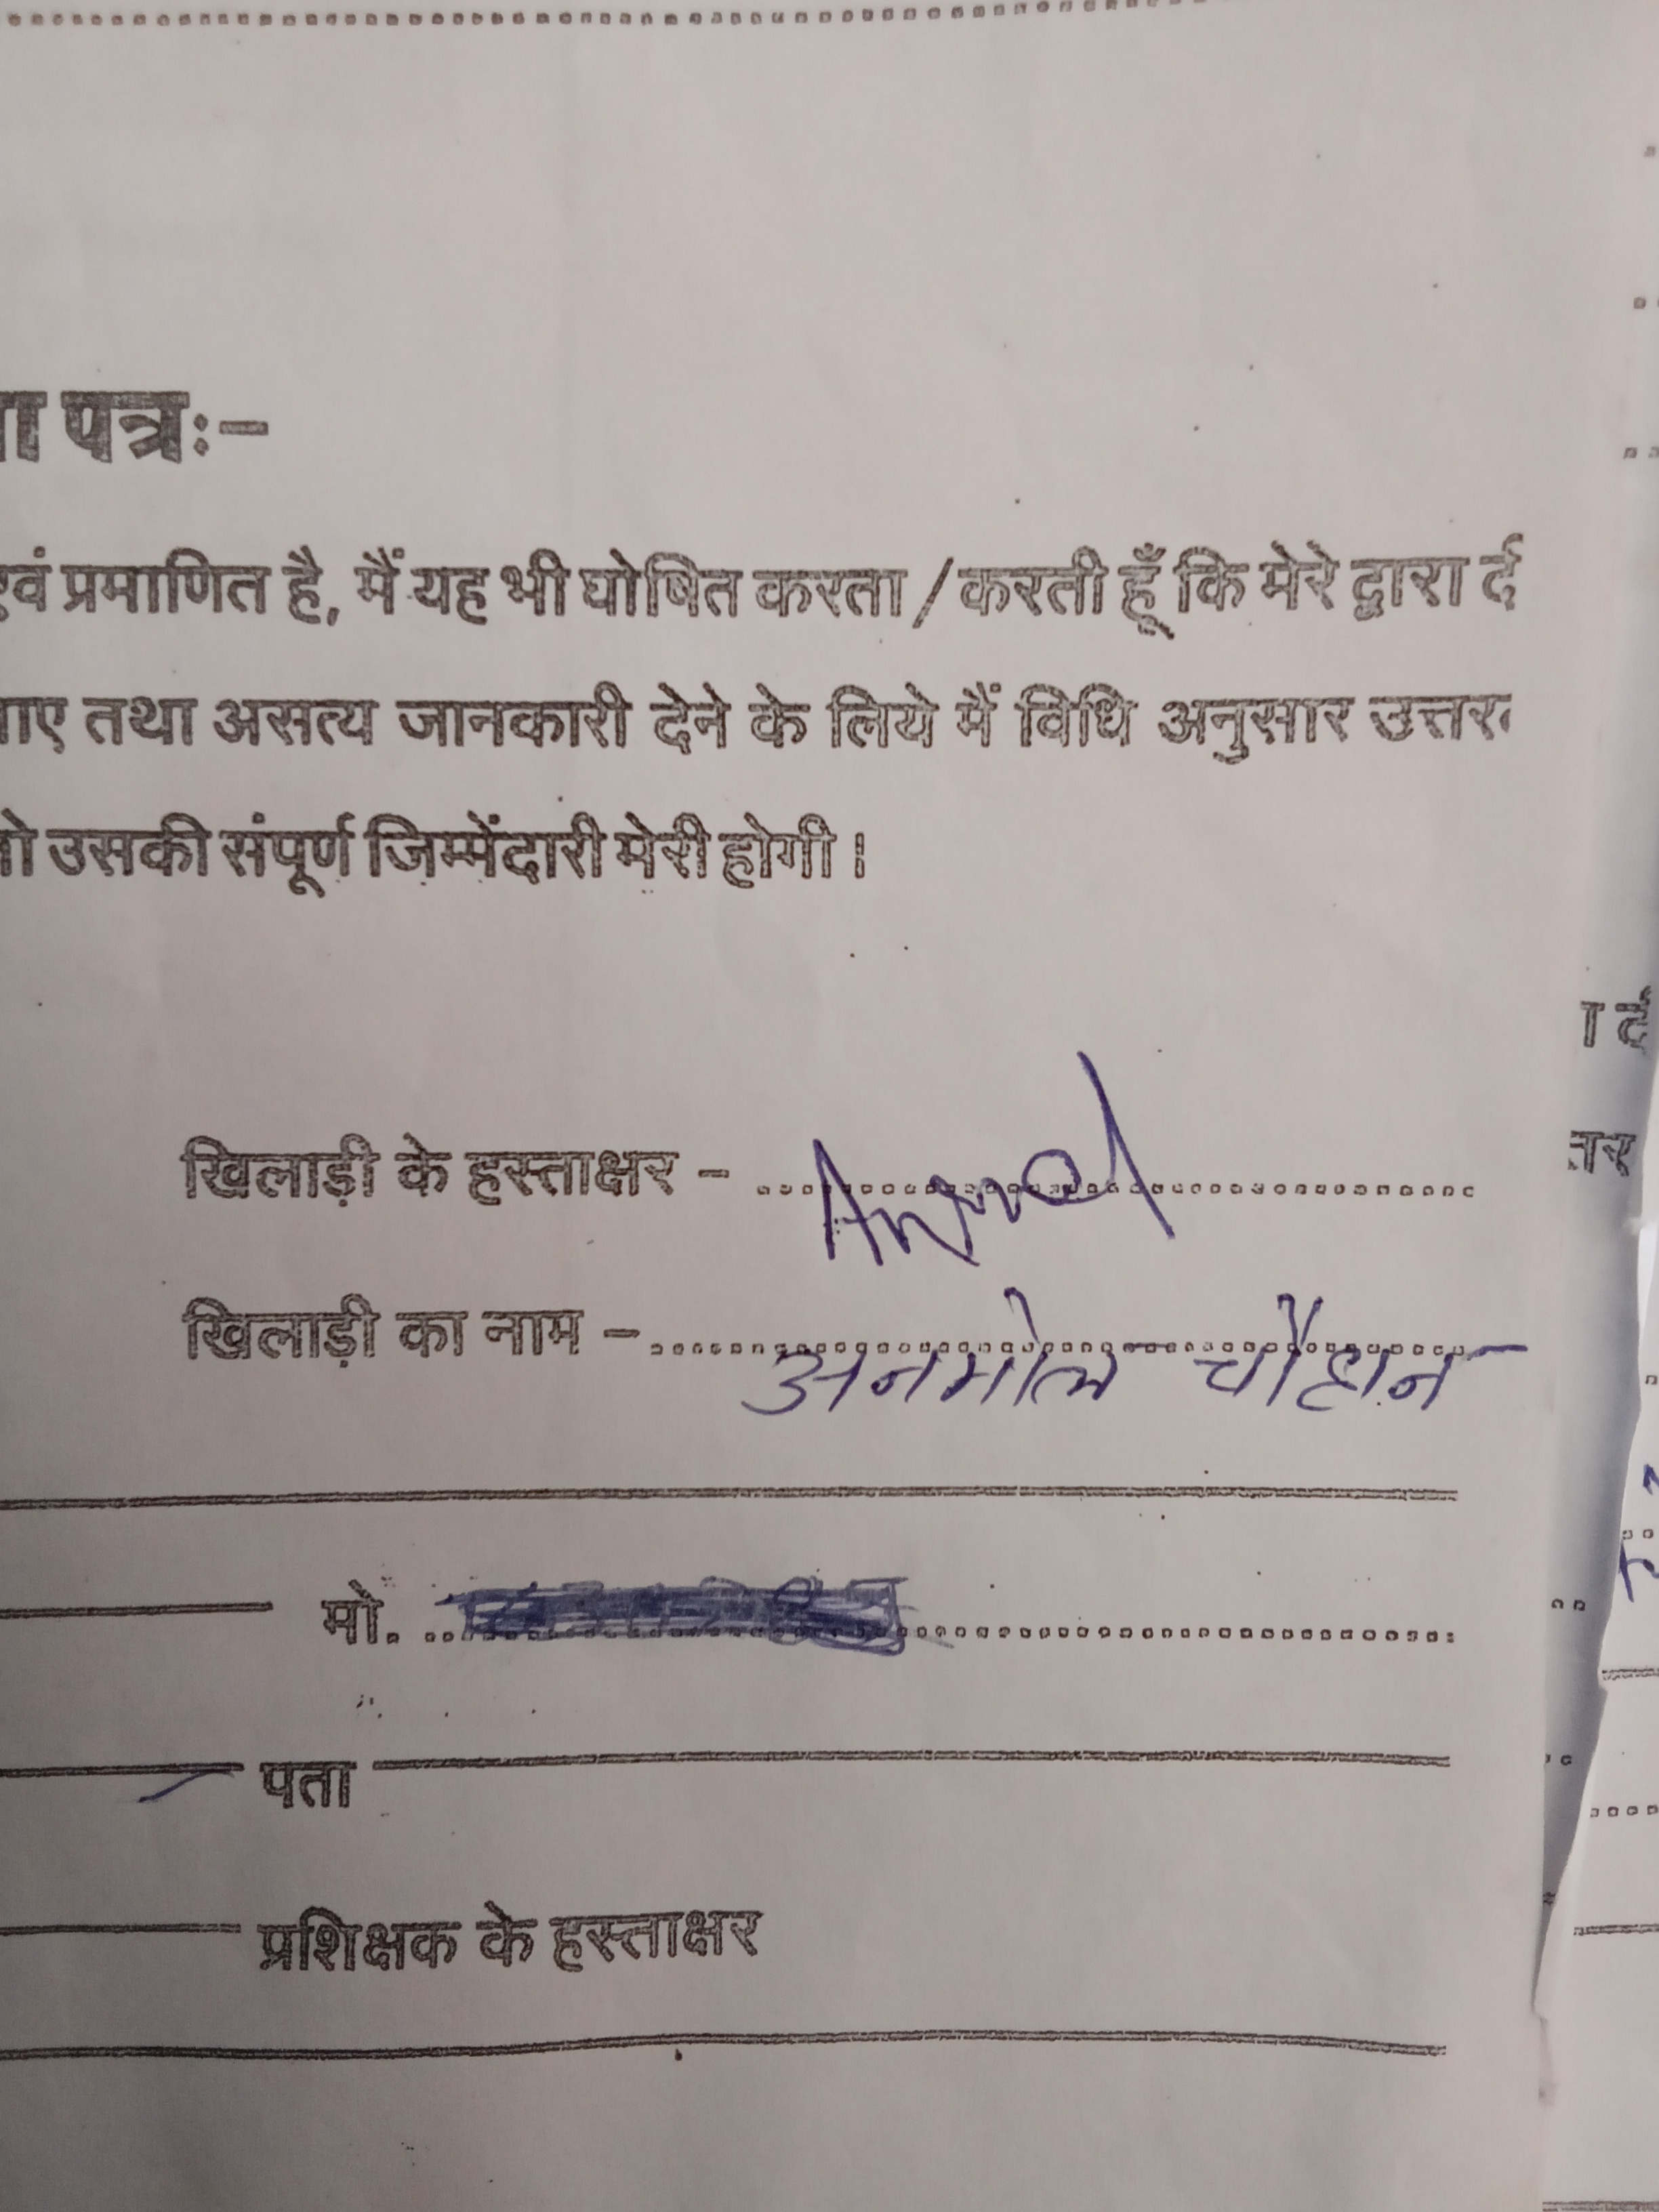 पत्रः-
एवं प्रमाणित है, मैं यह भी घोषित करता / करती हूँ कि मेरे द्वारा
तथा असत्य जानकारी देने के लिये मैं विधि अनुसार
उसकी संपूर्ण जिम्मेंदारी मेरी होगी।
खिलाड़ी के हस्ताक्षर - Anmol
खिलाड़ी का नाम - अनमोल चौहान
मो.
पता
प्रशिक्षक के हस्ताक्षर